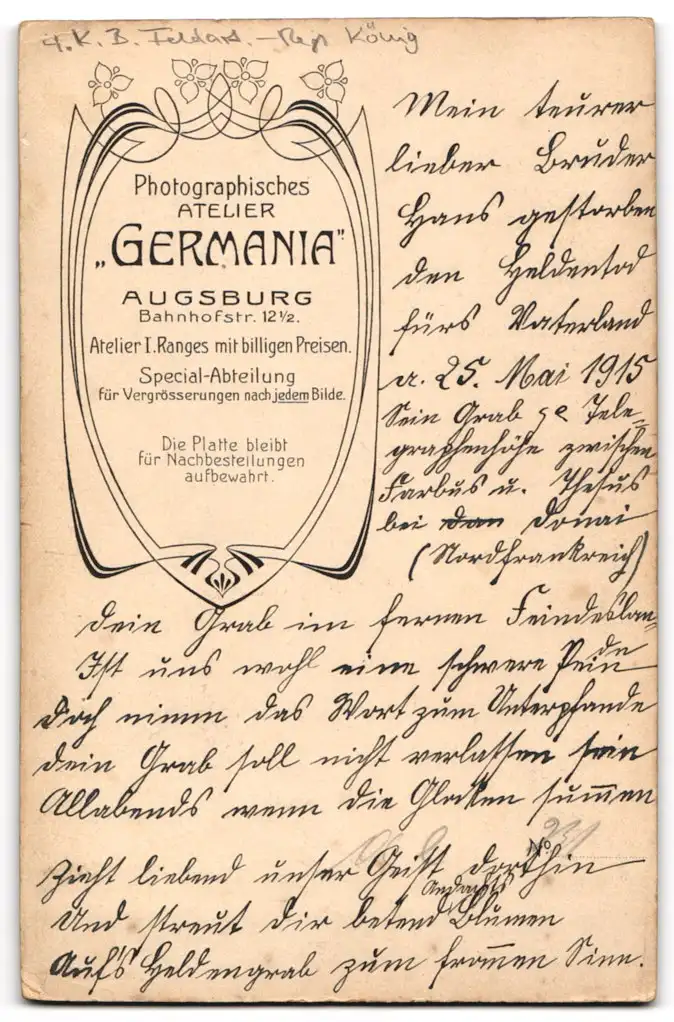 4. K. B. Feldart.-Regt König
Photographisches
ATELIER
„GERMANIA"
AUGSBURG
Bahnhofstr. 12½.
Atelier I. Ranges mit billigen Preisen.
Special-Abteilung
für Vergrösserungen nach jedem Bilde.
Die Platte bleibt
für Nachbestellungen
aufbewahrt.
Mein teurer
lieber Bruder
Hans gestorben
den Heldentod
fürs Vaterland
a. 25. Mai 1915
Sein Grab Tele-
graphenhöhe zwischen
Farbus u. Thelus
bei dan Donai
(Nordfrankreich)
Dein Grab im fernen Feindeslan-
de
Ist uns wohl eine schwere Pein
Doch nimm das Wort zum Unterpfande
Dein Grab soll nicht verlassen sein
Allabends wenn die Glocken summen
No 
Zieht liebend unser Geist dorthin
Andachts
Und streut dir betend Blumen
Auf's Heldengrab zum frommen Sinn.